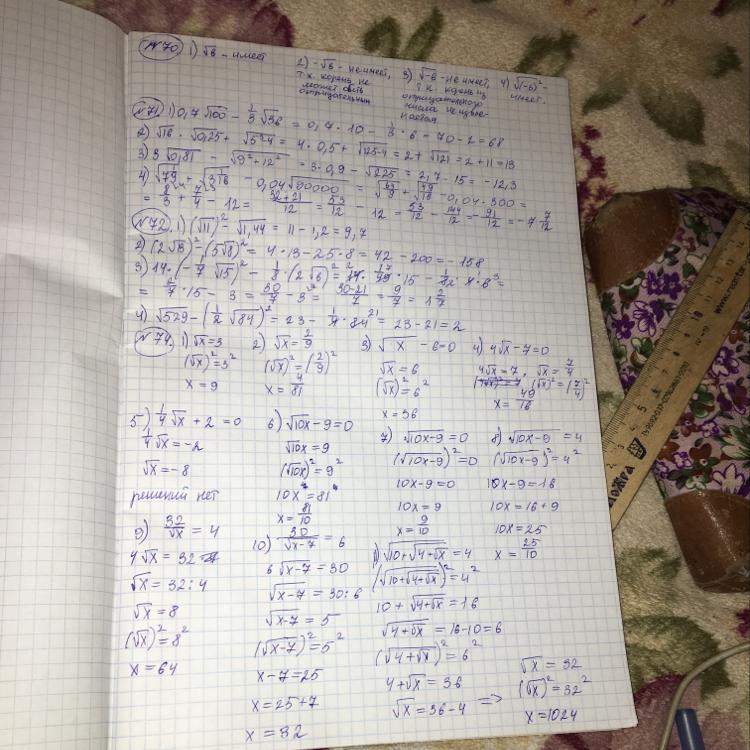 №70 1) √6 - имеет
2) -√6 - не имеет, т.к. корень не может быть отрицательным
3) √-6 - не имеет, т.к. корень из отрицательного числа не извлекается
4) √(-6)² - имеет.
№71. 1) 0,7√100 - 1/3 √36 = 0,7 · 10 - 1/3 · 6 = 70 - 2 = 68
2) √16 · √0,25 + √5³-4 = 4 · 0,5 + √125-4 = 2 + √121 = 2 + 11 = 13
3) 3√0,81 - √9²+12² = 3 · 0,9 - √225 = 2,7 - 15 = -12,3
= 8/3 + 7/4 - 12 = 32+21/12 = 53/12 - 12 = 53/12 - 144/12 = -91/12 = -7 7/12
№72. 1) (√11)² - √1,44 = 11 - 1,2 = 9,7
2) (2√13)² - (5√8)² = 4 · 13 - 25 · 8 = 42 - 200 = -158
= 2/7 · 15 - 3 = 30/7 - 3 = 30-21/7 = 9/7 = 1 2/7
4) √529 - (1/2 √84)² = 23 - 1/4 · 84 = 23 - 21 = 2
№74. 1) √x = 3
(√x)² = 3²
x = 9
2) √x = 2/9
(√x)² = (2/9)²
x = 4/81
3) √x - 6 = 0
√x = 6
(√x)² = 6²
x = 36
4) 4√x - 7 = 0
4√x = 7, √x = 7/4
(√x)² = (7/4)²
x = 49/16
5) 1/4 √x + 2 = 0
1/4 √x = -2
√x = -8
решений нет
6) √10x - 9 = 0
√10x = 9
(√10x)² = 9²
10x = 81
x = 81/10
7) √10x-9 = 0
(√10x-9)² = 0
10x - 9 = 0
10x = 9
x = 9/10
8) √10x-9 = 4
(√10x-9)² = 4²
10x - 9 = 16
10x = 16 + 9
10x = 25
x = 25/10
9) 32/√x = 4
4√x = 32
√x = 32 : 4
√x = 8
(√x)² = 8²
x = 64
10) 30/√x-7 = 6
6√x-7 = 30
√x-7 = 30 : 6
√x-7 = 5
(√x-7)² = 5²
x - 7 = 25
x = 25 + 7
x = 32
11) √10+√4+√x = 4
(√10+√4+√x)² = 4²
10 + √4+√x = 16
√4+√x = 16 - 10 = 6
(√4+√x)² = 6²
4 + √x = 36
√x = 36 - 4 =>
√x = 32
(√x)² = 32²
x = 1024